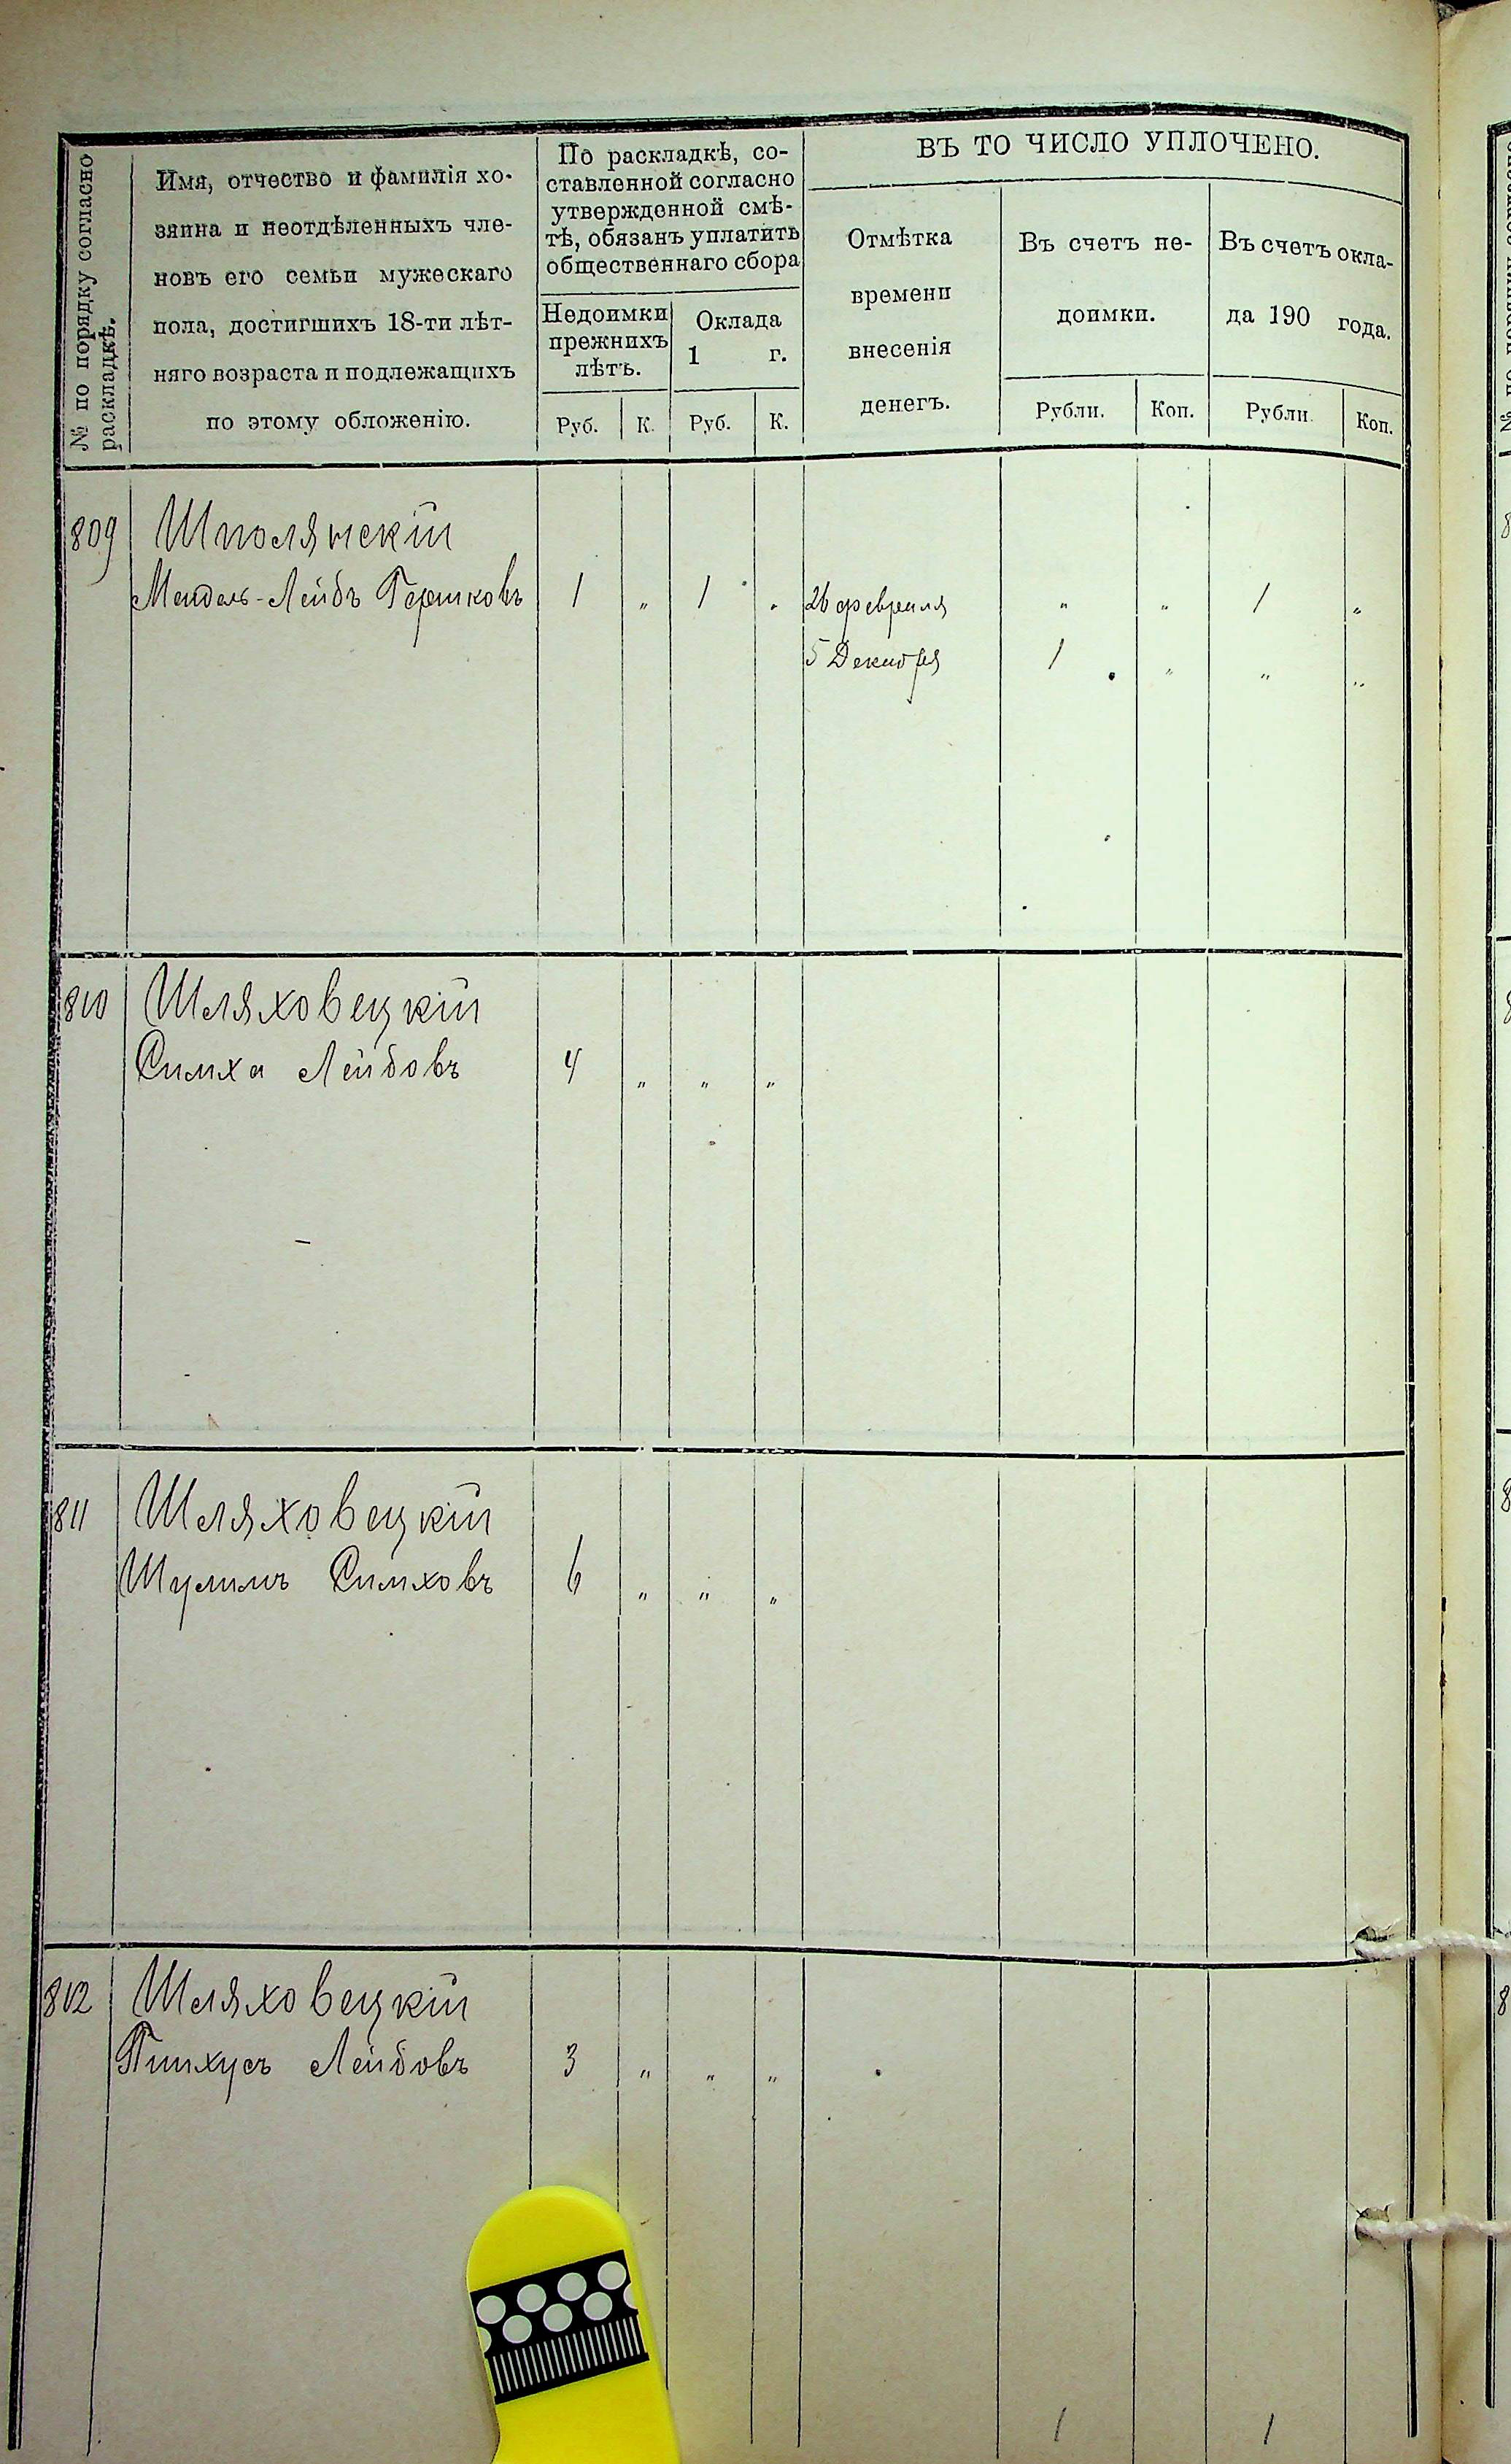 № по порядку согласно
раскладкѣ.
Имя, отчество и фамилія хо-
зяина и неотдѣленныхъ чле-
новъ его семьи мужескаго
пола, достигшихъ 18-ти лѣт-
няго возраста и подлежащихъ
по этому обложенію.
По раскладкѣ, со-
ставленной согласно
утвержденной смѣ-
тѣ, обязанъ уплатить
общественнаго сбора
Недоимки
прежнихъ
лѣтъ.
Оклада
1 г.
Руб. К. Руб. К.
ВЪ ТО ЧИСЛО УПЛОЧЕНО.
Отмѣтка
времени
внесенія
денегъ.
Въ счетъ не-
доимки.
Рубли. Коп.
Въ счетъ окла-
да 190 года.
Рубли. Коп.
809 Шполянскій
Мендель-Лейбъ Гершковъ 1 " 1 " 26 февраля " " 1 "
5 Декабря 1 " " "
810 Шляховецкій
Симха Лейбовъ 4 " " "
811 Шляховецкій
Шулимъ Симховъ 6 " " "
812 Шляховецкій
Пинхусъ Лейбовъ 3 " " "
1 1